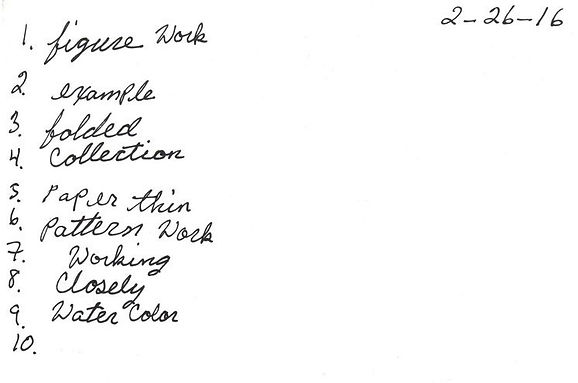 2-26-16
1. figure Work
2. example
3. folded
4. Collection
5. Paper thin
6. Pattern Work
7. Working
8. Closely
9. Water Color
10.